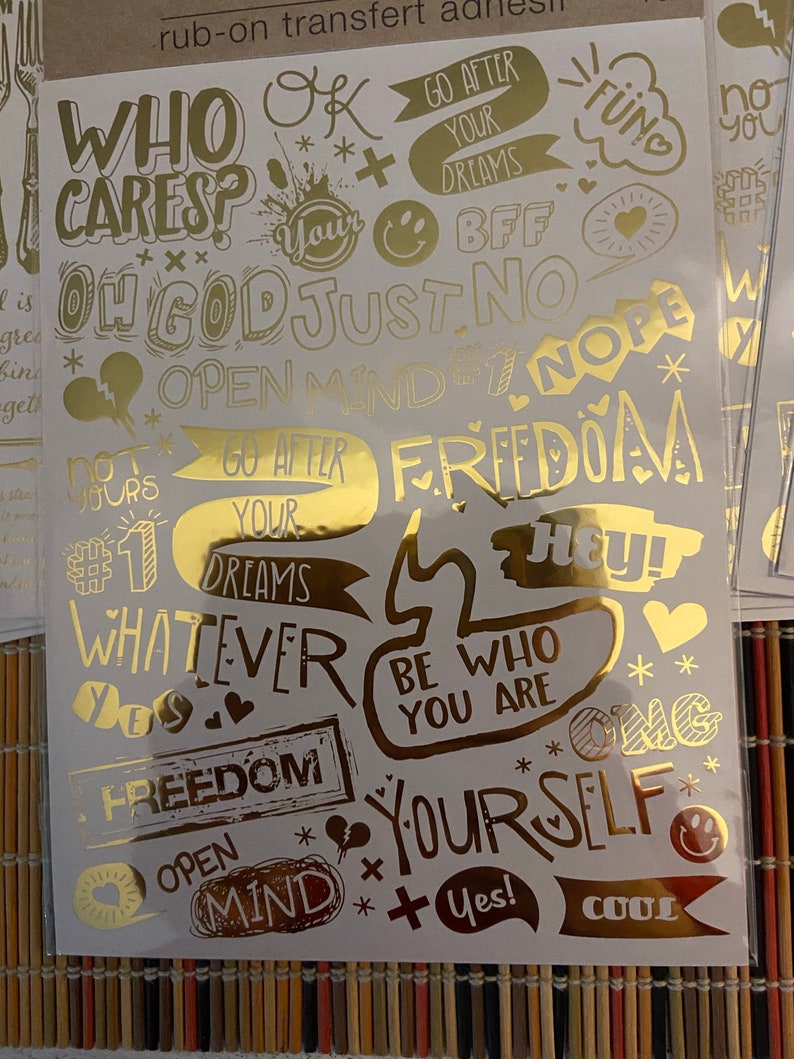 rub-on transfert adhésif
WHO
CARES?
OK
GO AFTER
YOUR
DREAMS
FÜN
Your
BFF
OH GOD JUST NO
OPEN MIND #1
NOPE
NOT
YOURS
GO AFTER
YOUR
DREAMS
FREEDOM
#1
HEY!
WHATEVER
BE WHO
YOU ARE
YES
OMG
FREEDOM
YOURSELF
OPEN
MIND
Yes!
COOL